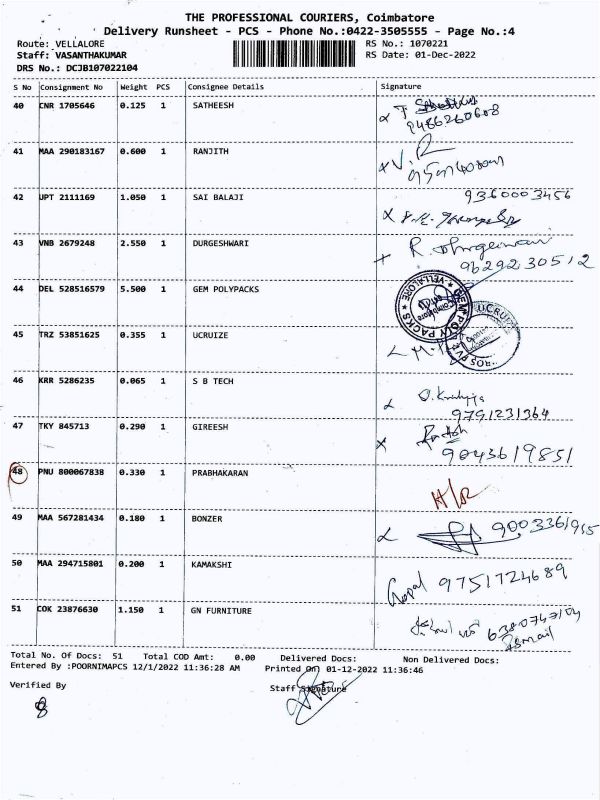 THE PROFESSIONAL COURIERS, Coimbatore
Delivery Runsheet - PCS - Phone No.:0422-3505555 - Page No.:4
Route: VELLALORE RS No.: 1070221
Staff: VASANTHAKUMAR RS Date: 01-Dec-2022
DRS No.: DCJB107022104
S No Consignment No Weight PCS Consignee Details Signature
40 CNR 1705646 0.125 1 SATHEESH
9486260608
41 MAA 290183167 0.600 1 RANJITH
V. R
42 UPT 2111169 1.050 1 SAI BALAJI 9360003456
43 VNB 2679248 2.550 1 DURGESHWARI R.
9629230512
44 DEL 528516579 5.500 1 GEM POLYPACKS
GEM POLY PACKS * VELLALORE *
45 TRZ 53851625 0.355 1 UCRUIZE
UCRUIZE
46 KRR 5286235 0.065 1 S B TECH
9791231364
47 TKY 845713 0.290 1 GIREESH
9043619851
48 PNU 800067838 0.330 1 PRABHAKARAN
49 MAA 567281434 0.180 1 BONZER 9003361915
50 MAA 294715801 0.200 1 KAMAKSHI
Gopal 9751724689
51 COK 23876630 1.150 1 GN FURNITURE
Total No. Of Docs: 51 Total COD Amt: 0.00 Delivered Docs: Non Delivered Docs:
Entered By :POORNIMAPCS 12/1/2022 11:36:28 AM Printed On 01-12-2022 11:36:46
Verified By Staff Signature